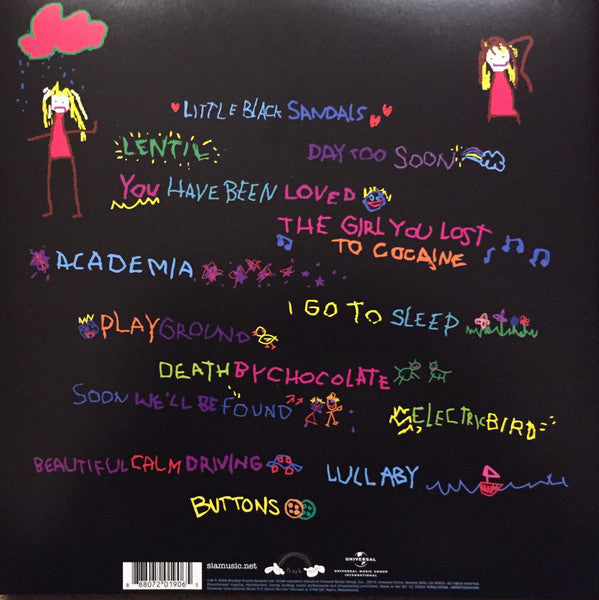 LITTLE BLACK SANDALS
LENTIL
DAY TOO SOON
YOU HAVE BEEN LOVED
THE GIRL YOU LOST
TO COCAINE
ACADEMIA
I GO TO SLEEP
PLAYGROUND
DEATH BY CHOCOLATE
SOON WE'LL BE FOUND
ELECTRIC BIRD
BEAUTIFUL CALM DRIVING
LULLABY
BUTTONS
siamusic.net
UNIVERSAL
UNIVERSAL MUSIC GROUP
INTERNATIONAL
8 88072 01906 5